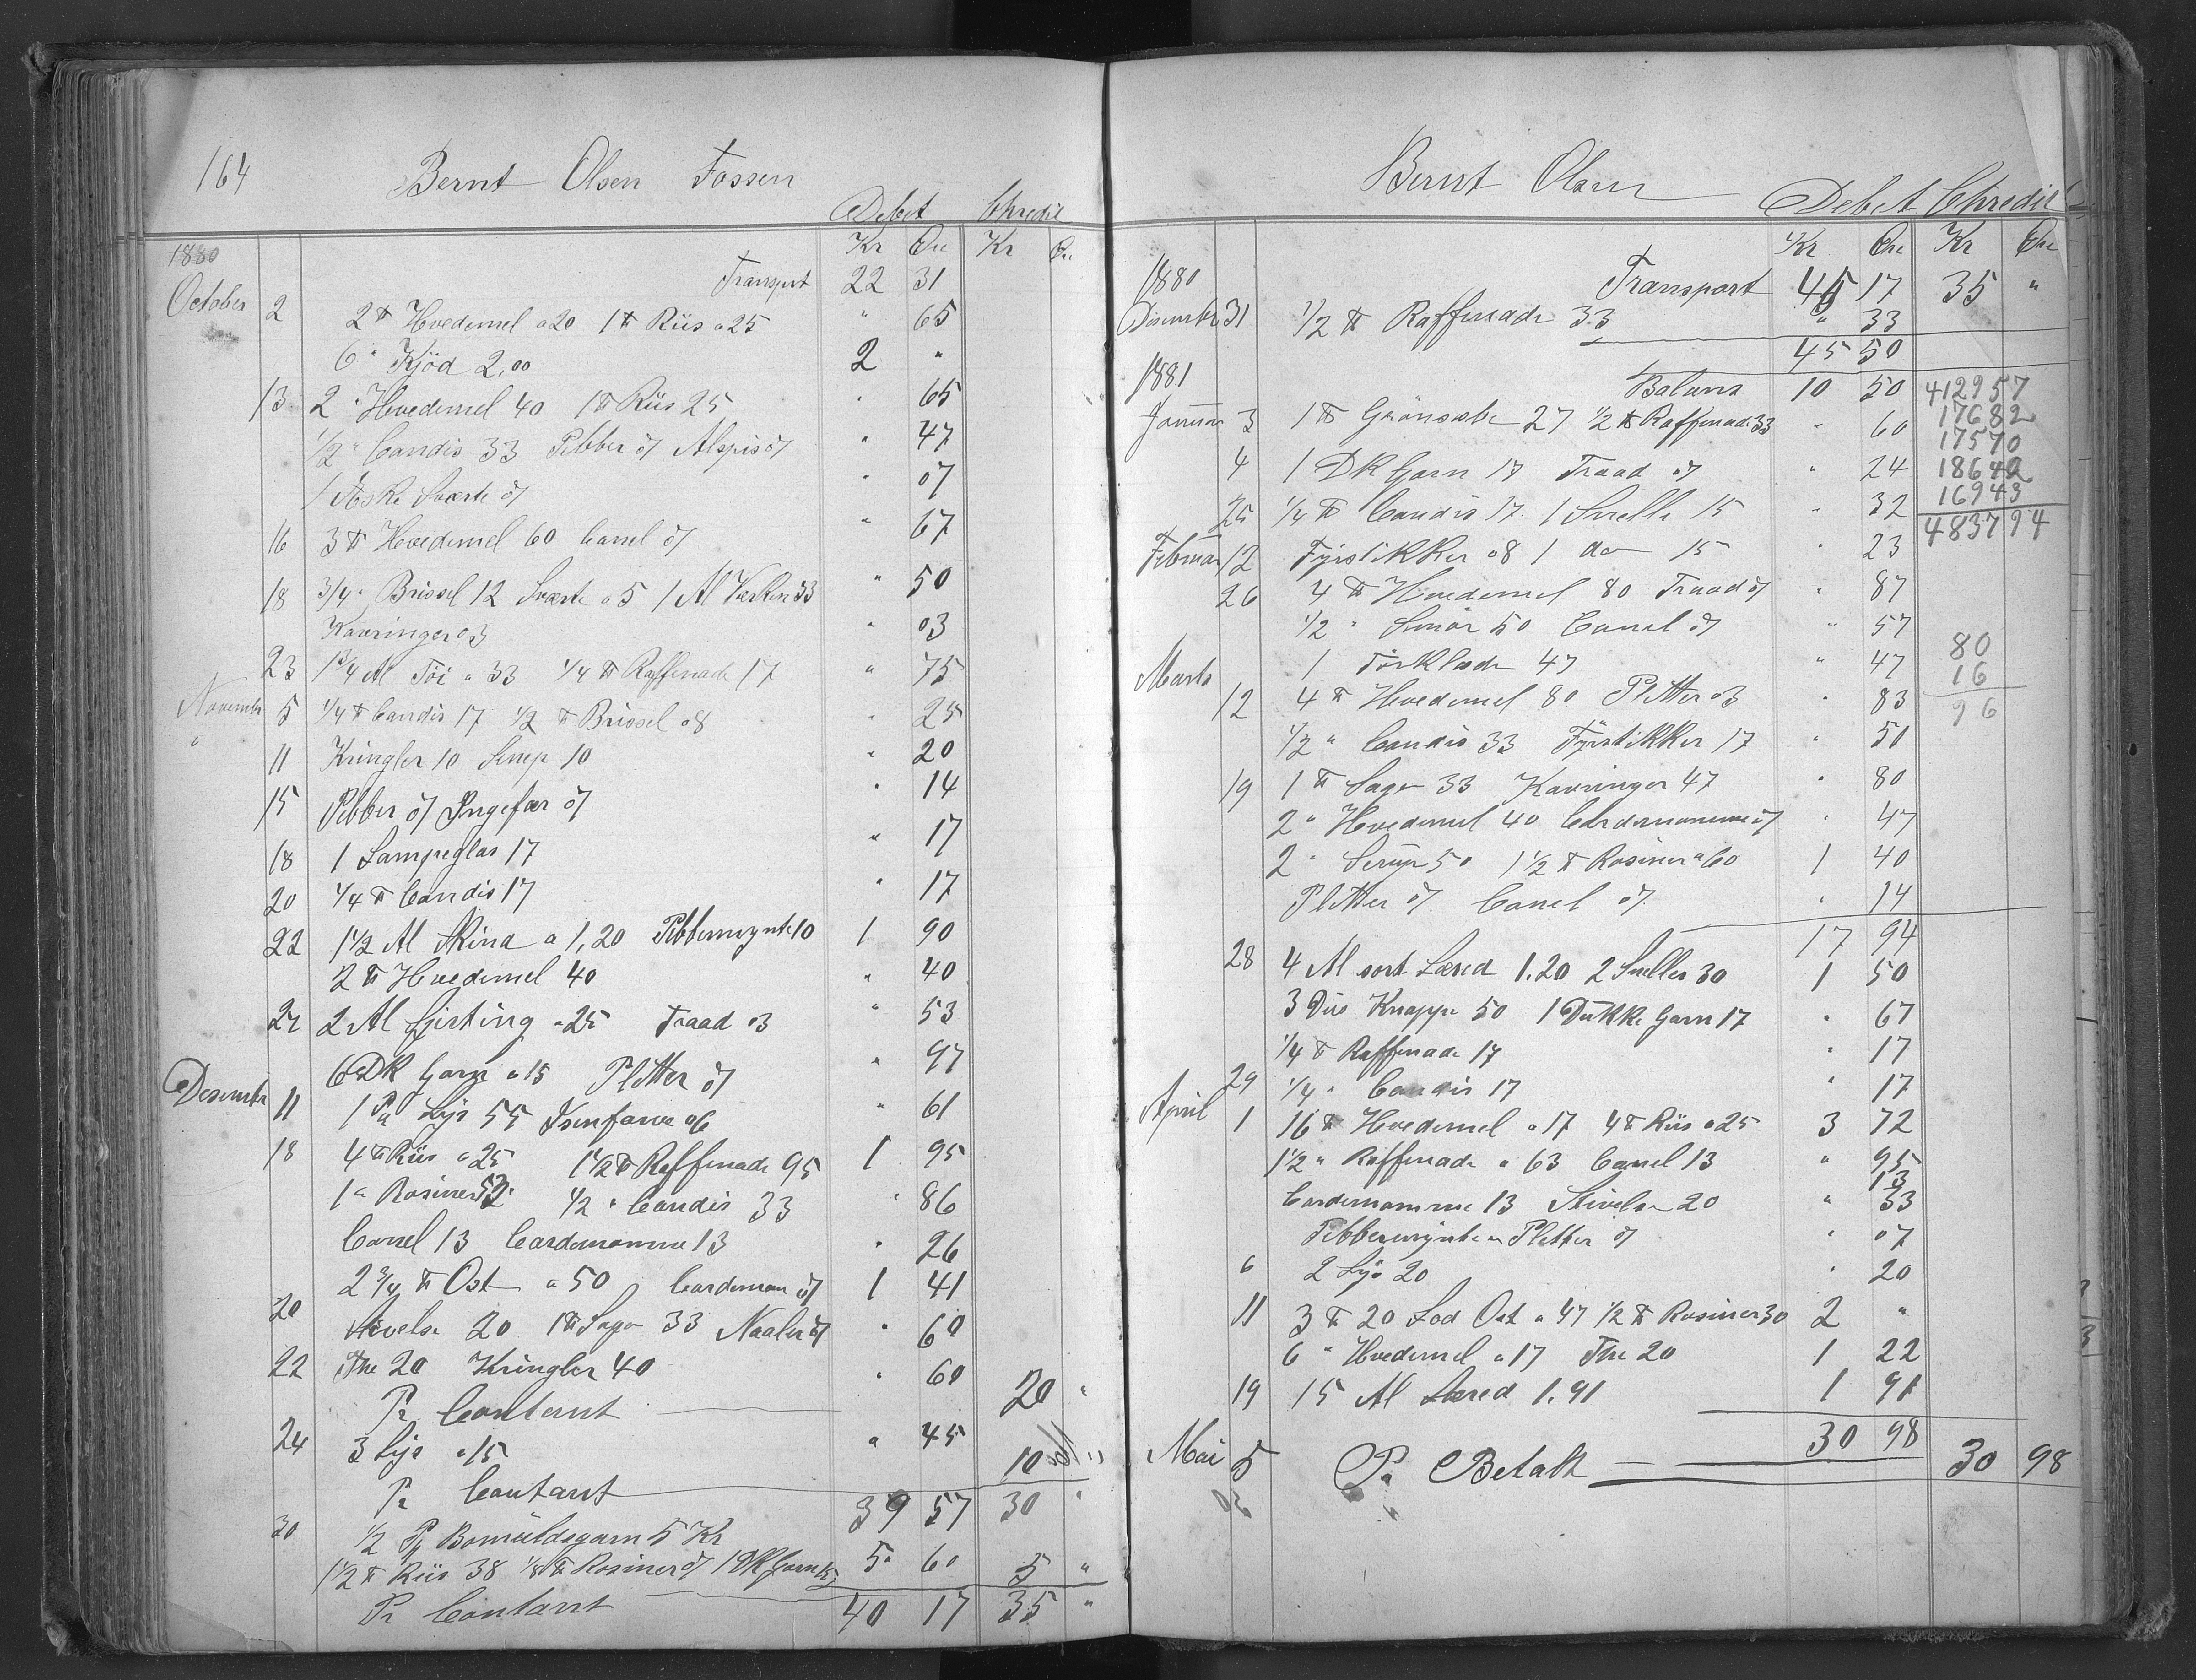 164 Bernt Olsen Fossen
Debet Chredit
Kr Öre Kr Öre
1880
Transport 22 31
October 2 2 ℔ Hvedemel a 20 1 ℔ Riis a 25 " 65
6 " Kjöd 2,00 2 "
13 2 " Hvedemel 40 1 ℔ Riis 25 " 65
1/2 " Candis 33 Pebber 07 Alspis 07 " 47
1 Æske Sværte 07 " 07
16 3 ℔ Hvedemel 60 Canel 07 " 67
18 3/4 " Brissel 12 Sværte a 5 1 Al 33 " 50
Kavringer 03 " 03
23 1 3/4 Al Töi a 33 1/4 ℔ Raffenade 17 " 75
November 5 1/4 ℔ Candis 17 1/2 ℔ Brissel 08 " 25
" 11 Kringler 10 Sirup 10 " 20
15 Pebber 07 Ingefær 07 " 14
18 1 Lampeglas 17 " 17
20 1/4 ℔ Candis 17 " 17
22 1 1/2 Al Skind a 1,20 Pebbermynte 10 1 90
2 ℔ Hvedemel 40 " 40
27 2 Al Sjirting a 25 Traad 03 " 53
6 DK Garn a 15 Pletter 07 " 97
Desember 11 1 Pa Lys 55 06 " 61
18 4 ℔ Riis a 25 1 1/2 ℔ Raffenade 95 1 95
1 " Rosiner 53 1/2 " Candis 33 " 86
Canel 13 Cardemomme 13 " 26
2 3/4 ℔ Ost a 50 Cardemom 07 1 41
20 Stivelse 20 1 ℔ Sago 33 Naaler 07 " 60
22 The 20 Kringler 40 " 60
Pr Contant 20 "
24 3 Lys a 15 " 45
Pr Contant 10 "
39 57 30 "
30 1/2 Pk Bomuldsgarn 5 Kr
1 1/2 ℔ Riis 38 1/8 ℔ Rosiner 07 1 DK Garn 15 5 60 5 "
Pr Contant 40 17 35 "
Bernt Olsen
Debet Chredit
Kr Öre Kr Öre
1880
Transport 45 17 35 "
Desember 31 1/2 ℔ Raffenade 33 " 33
45 50
1881
Balans 10 50 412957
Januar 3 1 ℔ Grönsæbe 27 1/2 ℔ Raffenade 33 " 60 17682
17570
4 1 DK Garn 17 Traad 07 " 24 18642
25 1/4 ℔ Candis 17 1 Snelle 15 " 32 16943
483794
Februar 12 Fyrstikker 08 1 do 15 " 23
26 4 ℔ Hvedemel 80 Traad 07 " 87
1/2 " Smör 50 Canel 07 " 57
Marts 1 Törklæde 47 " 47 80
16
12 4 ℔ Hvedemel 80 Pletter 03 " 83 96
1/2 " Candis 33 Fyrstikker 17 " 51
19 1 ℔ Sago 33 Kavringer 47 " 80
2 " Hvedemel 40 Cardemomme 07 " 47
2 " Sirup 50 1 1/2 ℔ Rosiner a 60 1 40
Pletter 07 Canel 07 " 14
17 94
28 4 Al sort Lærred 1.20 2 Sneller 30 1 50
3 Dus Knappe 50 1 Dukke Garn 17 " 67
1/4 ℔ Raffenade 17 " 17
29 1/4 " Candis 17 " 17
April 1 16 ℔ Hvedemel a 17 4 ℔ Riis a 25 3 72
1 1/2 " Raffenade a 63 Canel 13 " 95
13
Cardemomme 13 Stivelse 20 " 33
Pebbermynte Pletter 07 " 07
6 2 Lys 20 " 20
11 3 ℔ 20 Lod Ost a 47 1/2 ℔ Rosiner 30 2 "
6 " Hvedemel a 17 The 20 1 22
19 15 Al Lærred 1.91 1 91
30 98
Mai 5 Pr Betalt 30 98